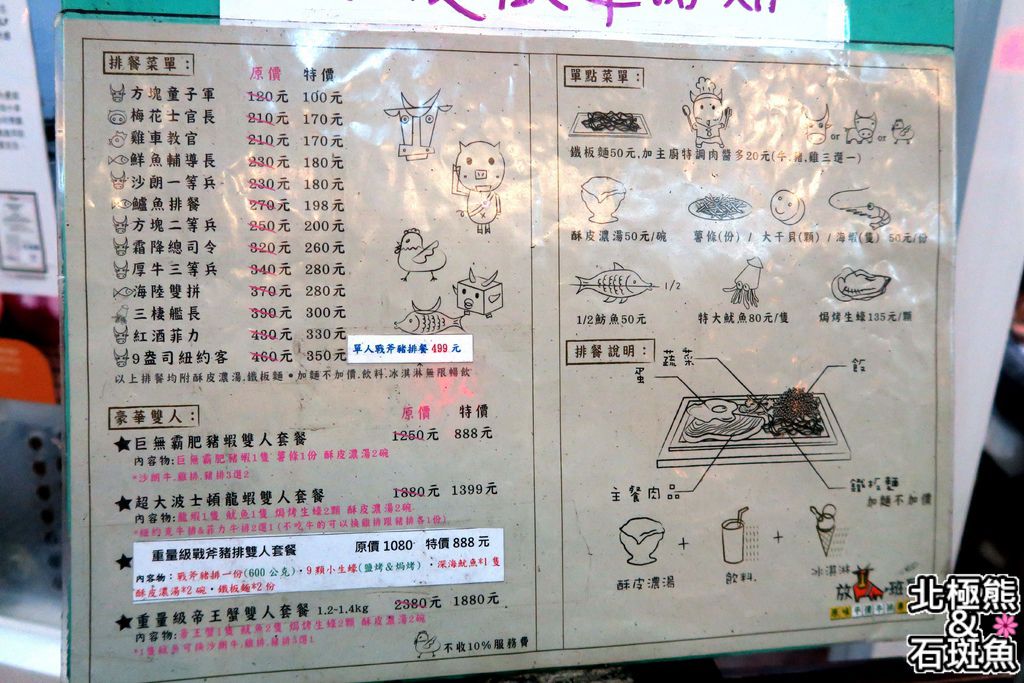 排餐菜單: 原價 特價
方塊童子軍 120元 100元
梅花士官長 210元 170元
雞車教官 210元 170元
鮮魚輔導長 230元 180元
沙朗一等兵 230元 180元
鱸魚排餐 270元 198元
方塊二等兵 250元 200元
霜降總司令 320元 260元
厚牛三等兵 340元 280元
海陸雙拼 370元 280元
三棲艦長 390元 300元
紅酒菲力 430元 330元
9盎司紐約客 460元 350元
單人戰斧豬排餐 499元
以上排餐均附酥皮濃湯.鐵板麵。加麵不加價.飲料.冰淇淋無限暢飲
豪華雙人: 原價 特價
★巨無霸肥豬蝦雙人套餐 1250元 888元
內容物:巨無霸肥豬蝦1隻 薯條1份 酥皮濃湯2碗
*沙朗牛.雞排.豬排3選2
★超大波士頓龍蝦雙人套餐 1880元 1399元
內容物:龍蝦1隻 魷魚1隻 焗烤生蠔2顆 酥皮濃湯2碗
*紐約克牛排&菲力牛排2選1(不吃牛的可以換雞排跟豬排各1份)
★重量級戰斧豬排雙人套餐 原價 1080 特價 888 元
內容物:戰斧豬排一份(600 公克)·9 顆小生蠔(鹽烤&焗烤)·深海魷魚*1 隻
酥皮濃湯*2 碗·鐵板麵*2 份
★重量級帝王蟹雙人套餐 1.2~1.4kg 2380元 1880元
內容物:帝王蟹1隻 魷魚2隻 焗烤生蠔2顆 酥皮濃湯2碗
*1隻魷魚可換沙朗牛.雞排.豬排3選1
不收10%服務費
單點菜單:
or or
鐵板麵50元,加主廚特調肉醬多20元(牛.豬.雞三選一)
酥皮濃湯50元/碗 薯條(份) / 大干貝(顆) / 海蝦(隻) 50元/份
1/2
1/2魴魚50元 特大魷魚80元/隻 焗烤生蠔135元/顆
排餐說明: 蔬菜
蛋 飯
主餐肉品 鐵板麵
加麵不加價
+ +
酥皮濃湯 飲料. 冰淇淋
放 班
原味平價牛排
北極熊
&
石斑魚